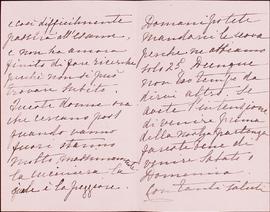 e così difficilmente
passerà all'esame,
e non ha ancora
finito di fare ricerche
perchè non si può
trovare subito.
Queste donne ora
che cercano post
quando vanno
fuori stanno
molto, massimamente
la cucineria la
quale è la peggiore.
Domani potete
mandarmi le uova
perchè ne abbiamo
solo 25. Dunque
non ho tempo da
dirvi altro. Se
avete l'intenzione
di venire prima
della nostra partenza
fareste bene di
venire sabato o
Domenica.
Con tanti saluti